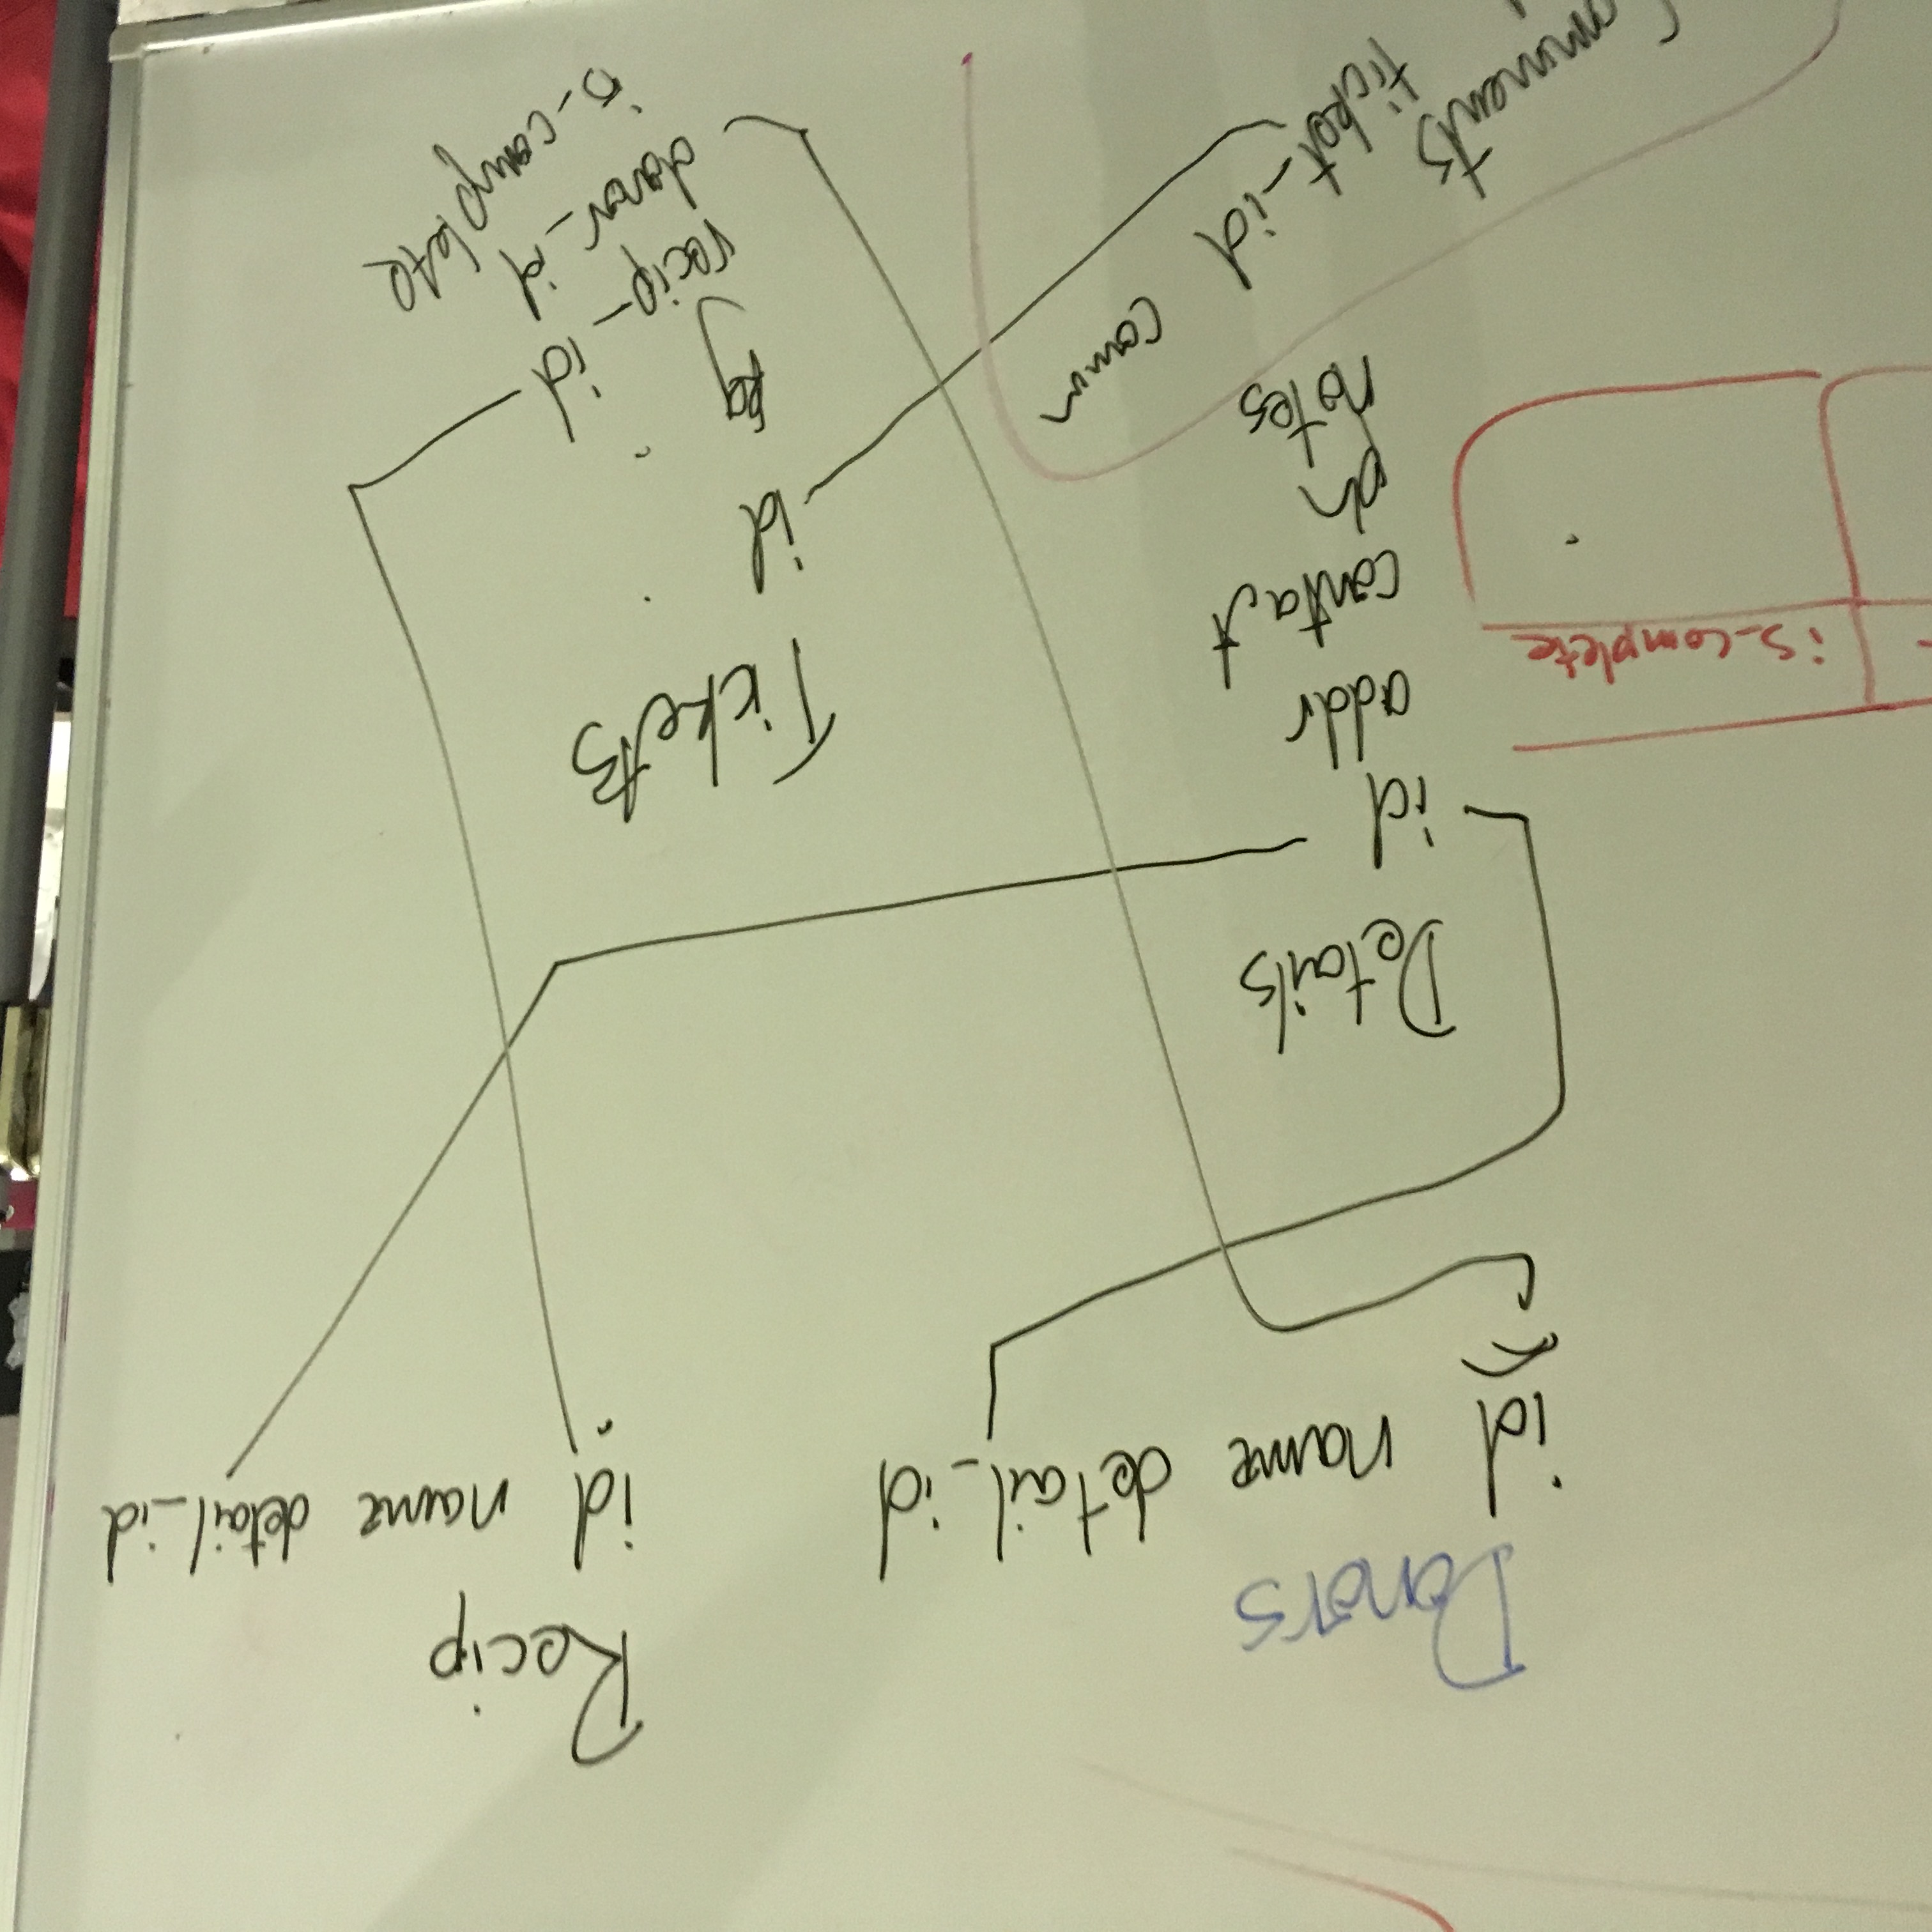 Donors
id name detail_id
Recip
id name detail_id
Details
id
addr
contact
ph
notes
is_complete
Tickets
id
kg
recip_id
donor_id
is_complete
Comments
ticket_id comm